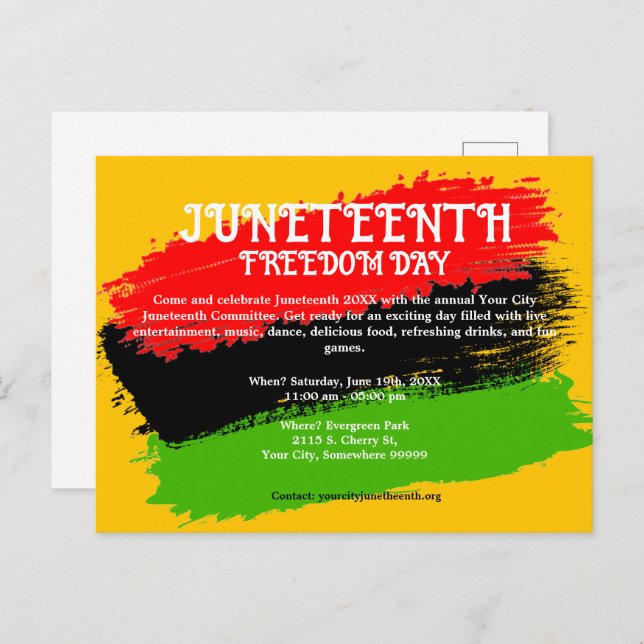 JUNETEENTH
FREEDOM DAY
Come and celebrate Juneteenth 20XX with the annual Your City
Juneteenth Committee. Get ready for an exciting day filled with live
entertainment, music, dance, delicious food, refreshing drinks, and fun
games.
When? Saturday, June 19th, 20XX
11:00 am - 05:00 pm
Where? Evergreen Park
2115 S. Cherry St,
Your City, Somewhere 99999
Contact: yourcityjunetheenth.org